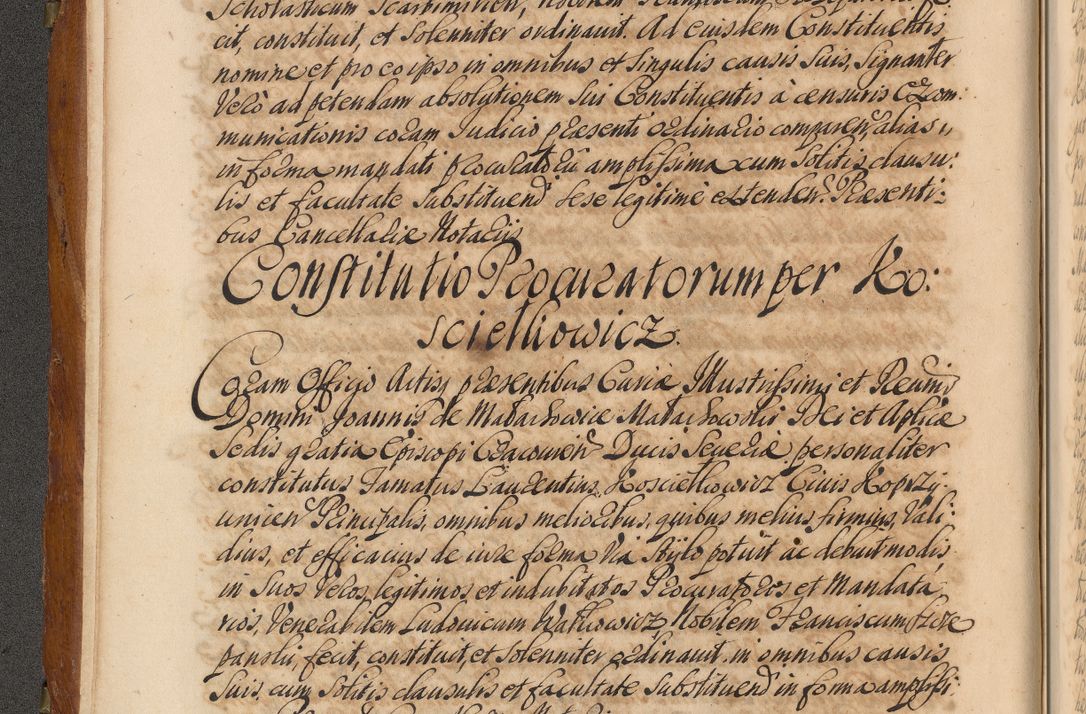 Scholasticum Scarbimirien,
cit, constituit, et Solenniter ordinavit. Ad eiusdem Constituentis
nomine et pro eo ipso in omnibus et Singulis causis Suis, Signanter
Vero ad petendam absolutionem Sui Constituentis à censuris Exom:
municationis coram Iudicio præsenti ordinario comparen alias
in forma mandati procuratorii amplissima cum Solitis clausu:
lis et facultate Substituend sese legitimè extenden. Præsenti:
bus Cancellariæ Notariis
Constitutio Procuratorum per Ko:
scielkowicz.
Coram Officio Actisq præsentibus Curiæ Illustrissimi et Reverendissimi
Domini Joannis de Małachowice Małachowski Dei et Aplicæ
Sedis gratia Episcopi Cracovien Ducis Severiæ personaliter
constitutus Famatus Laurentius Koscielkowicz Civis Koprzy:
vnicen Principalis, omnibus melioribus, quibus melius, firmius, Vali:
dius, et efficacius de iure forma Via Stylo potuit ac debuit modis
in Suos Veros, legitimos et indubitatos Procuratores et Mandata
rios, Venerabilem Ladovicum Franciscum
panski, fecit, constituit, et Solenniter ordinavit in omnibus causis
Suis, cum Solitis clausulis et facultate Substituend in forma amplissi